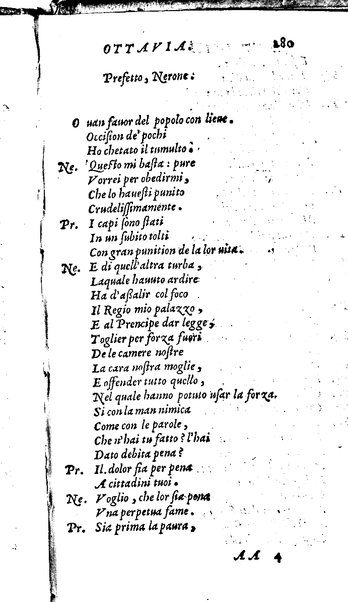 OTTAVIA. 280
Prefetto, Nerone.
O uan fauor del popolo con lieue.
Occision de' pochi
Ho chetato il tumulto.
Ne. Questo mi basta: pure
Vorrei per obedirmi,
Che lo hauesti punito
Crudelissimamente.
Pr. I capi sono stati
In un subito tolti
Con gran punition de la lor uita.
Ne. E di quell'altra turba,
Laquale hauuto ardire
Ha d'aßalir col foco
Il Regio mio palazzo,
E al Prencipe dar legge;
Toglier per forza fuori
De le camere nostre
La cara nostra moglie,
E offender tutto quello,
Nel quale hanno potuto usar la forza.
Si con la man nimica
Come con le parole,
Che n'hai tu fatto? l'hai
Dato debita pena?
Pr. Il dolor sia per pena
A cittadini tuoi.
Ne. Voglio, che lor sia pena
Vna perpetua fame.
Pr. Sia prima la paura,
AA 4